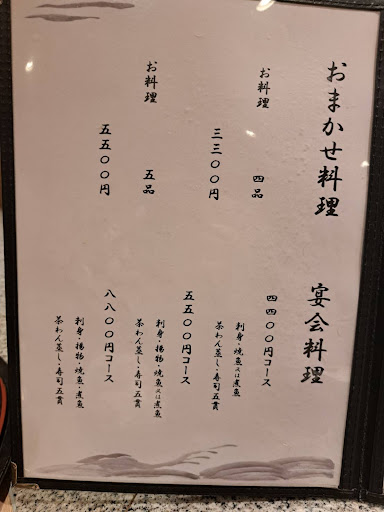 おまかせ料理
お料理　四品
三三〇〇円
お料理　五品
五五〇〇円
宴会料理
四四〇〇円コース
刺身・焼魚又は煮魚
茶わん蒸し・寿司五貫
五五〇〇円コース
刺身・揚物・焼魚又は煮魚
茶わん蒸し・寿司五貫
八八〇〇円コース
刺身・揚物・焼魚・煮魚
茶わん蒸し・寿司五貫